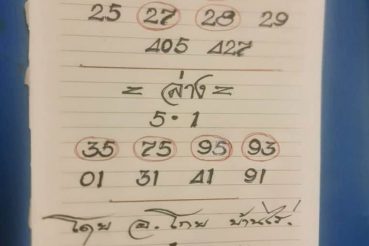 25 27 28 29
405 427
= ล่าง =
5 · 1
35 75 95 93
01 31 41 91
โดย อ. โทย บ้านไร่.